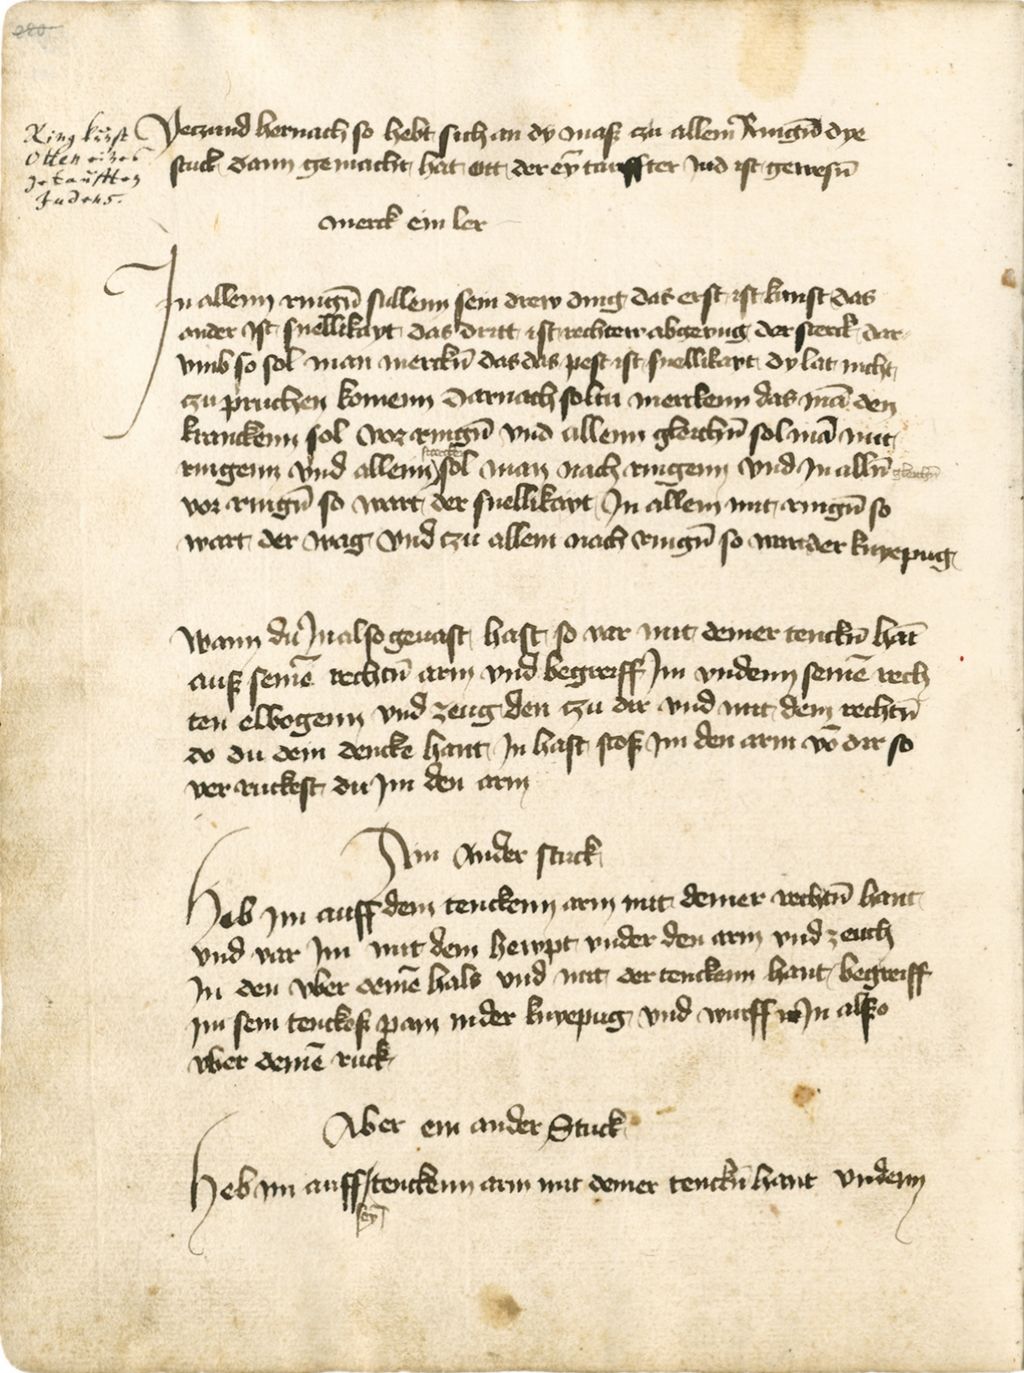 280
Ring kunst
Otten eines
getaufften
Judens.
Yeczund hernach so hebt sich an dy mass zu allem Ringn̄ dye
stuck dann gemacht hat ott der eȳ tauffter Jud ist gewesn̄
Merck ein ler
In allenn ringn̄ sullenn sein drew ding das erst ist kunst das
ander ist snellikayt das dritt ist rechtew abgerug der sterck dar
vmb so sol man merckn̄ das das pest ist snellikayt dy lat nicht
czu pruchen komenn Darnach soltu merckenn das mā den
kranckenn sol vor ringn̄ vnd allenn gleichn̄ sol mā mit
ringenn vnd allenn starcken sol man nach ringenn vnd In alln̄ gleichn̄
vor ringn̄ so wart der snellikayt In allem mit ringn̄ so
wart der wag vnd czu allem nach ringn̄ so wart der knyepug
Wann du In also geuast hast so var mit deiner tenckn̄ hāt
auß seinē rechtn̄ arm vnd begreiff Im vndenn seinē rech
ten elbogenn vnd zeug den czu dir vnd mit dem rechtn̄
do du dem dencke hant In hast stoß Im den arm vō dir so
ver ruckest du Im den arm
Ain ander stuck
Heb im auff dem tenckenn arm mit deiner rechtn̄ hant
vnd var Im mit dem hewpt vnder den arm vnd zeuch
In den vber deinē hals vnd mit der tenckenn hant begreiff
im sein tenckeß pain in der knyepug vnd wurff In alßo
vber deinē ruck
Aber ein ander Stuck
Heb im auff seȳ tenckenn arm mit deiner tenckn̄ hant vndenn